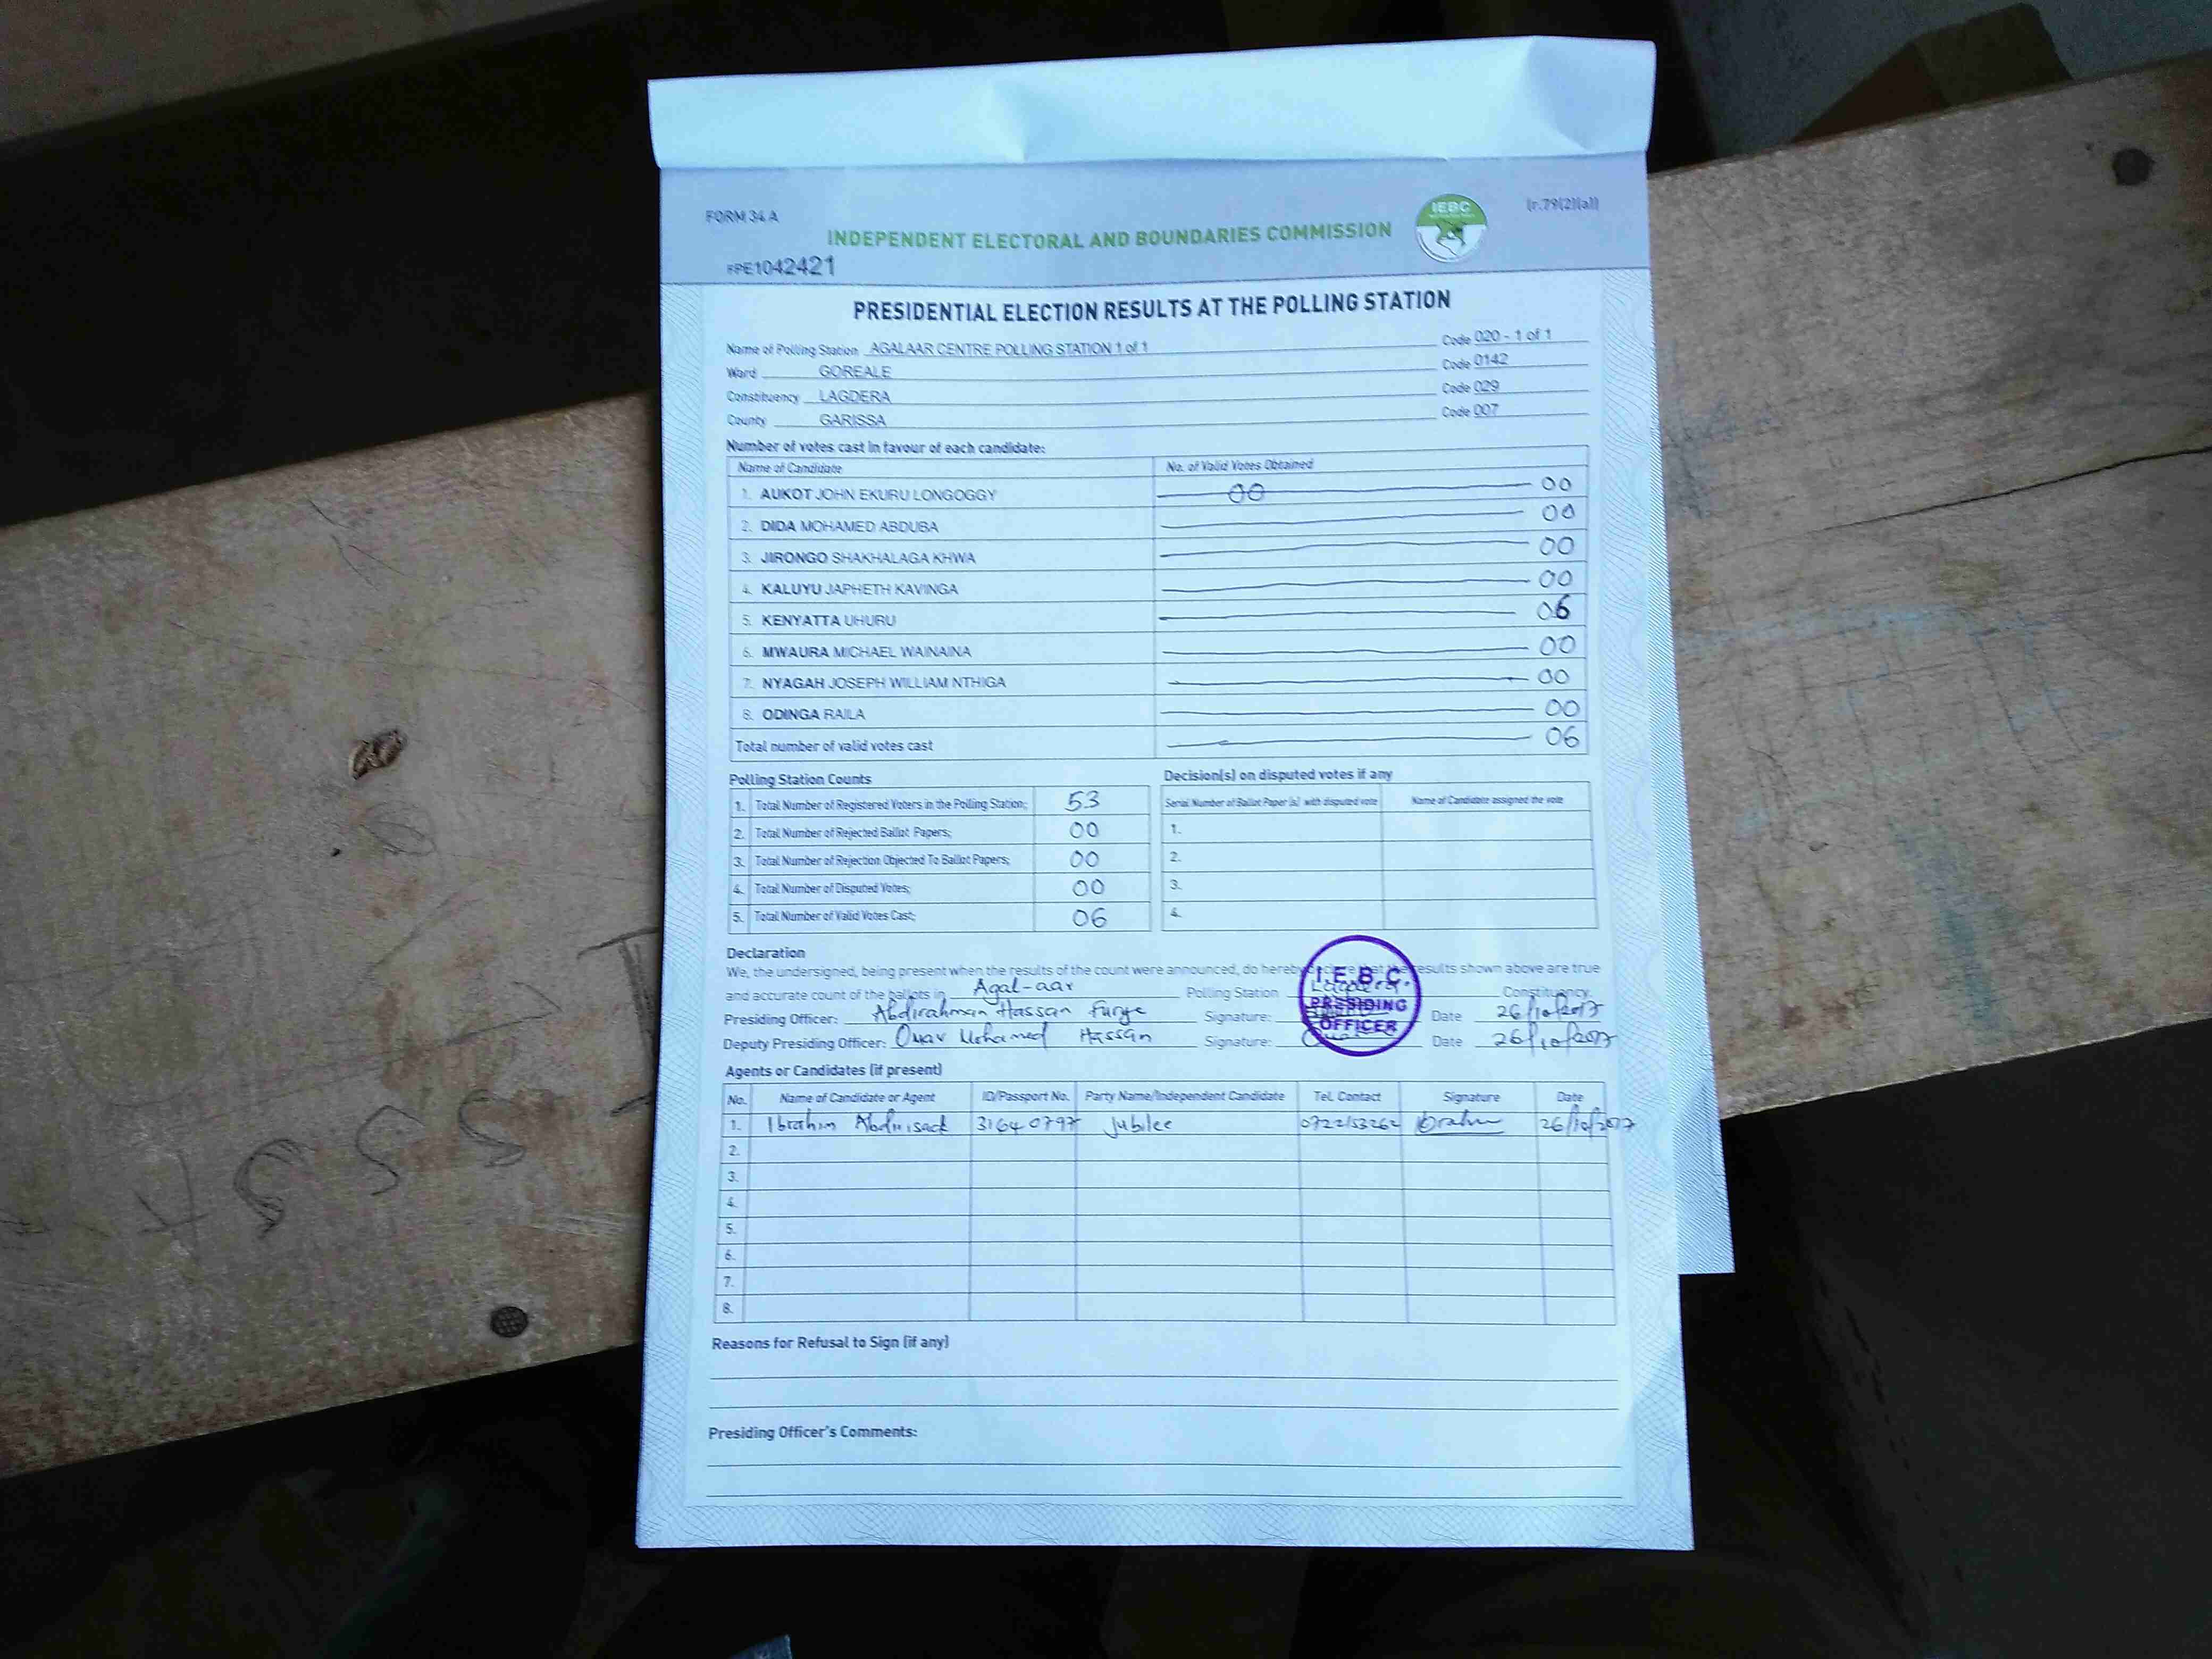 FORM 34 A
[r.79(2)(a)]
IEBC
INDEPENDENT ELECTORAL AND BOUNDARIES COMMISSION
PPE1042421
PRESIDENTIAL ELECTION RESULTS AT THE POLLING STATION
Name of Polling Station AGALAAR CENTRE POLLING STATION 1 of 1 Code 020 - 1 of 1
Ward GOREALE Code 0142
Constituency LAGDERA Code 029
County GARISSA Code 007
Number of votes cast in favour of each candidate:
Name of Candidate No. of Valid Votes Obtained
1. AUKOT JOHN EKURU LONGOGGY 00 00
2. DIDA MOHAMED ABDUBA 00
3. JIRONGO SHAKHALAGA KHWA 00
4. KALUYU JAPHETH KAVINGA 00
5. KENYATTA UHURU 06
6. MWAURA MICHAEL WAINAINA 00
7. NYAGAH JOSEPH WILLIAM NTHIGA 00
8. ODINGA RAILA 00
Total number of valid votes cast 06
Polling Station Counts
1. Total Number of Registered Voters in the Polling Station; 53
2. Total Number of Rejected Ballot Papers; 00
3. Total Number of Rejection Objected To Ballot Papers; 00
4. Total Number of Disputed Votes; 00
5. Total Number of Valid Votes Cast; 06
Decision(s) on disputed votes if any
Serial Number of Ballot Paper (s) with disputed vote Name of Candidate assigned the vote
1.
2.
3.
4.
Declaration
We, the undersigned, being present when the results of the count were announced, do hereby declare that the results shown above are true
and accurate count of the ballots in Agal-aar Polling Station Lagdera Constituency
Presiding Officer: Abdirahman Hassan Furye Signature: Date 26/10/2017
Deputy Presiding Officer: Omar Mohamed Hassan Signature: Date 26/10/2017
I.E.B.C
PRESIDING
OFFICER
Agents or Candidates (if present)
No. Name of Candidate or Agent ID/Passport No. Party Name/Independent Candidate Tel. Contact Signature Date
1. Ibrahim 31640797 Jubilee 0722153262 26/10/2017
2.
3.
4.
5.
6.
7.
8.
Reasons for Refusal to Sign (if any)
Presiding Officer's Comments: